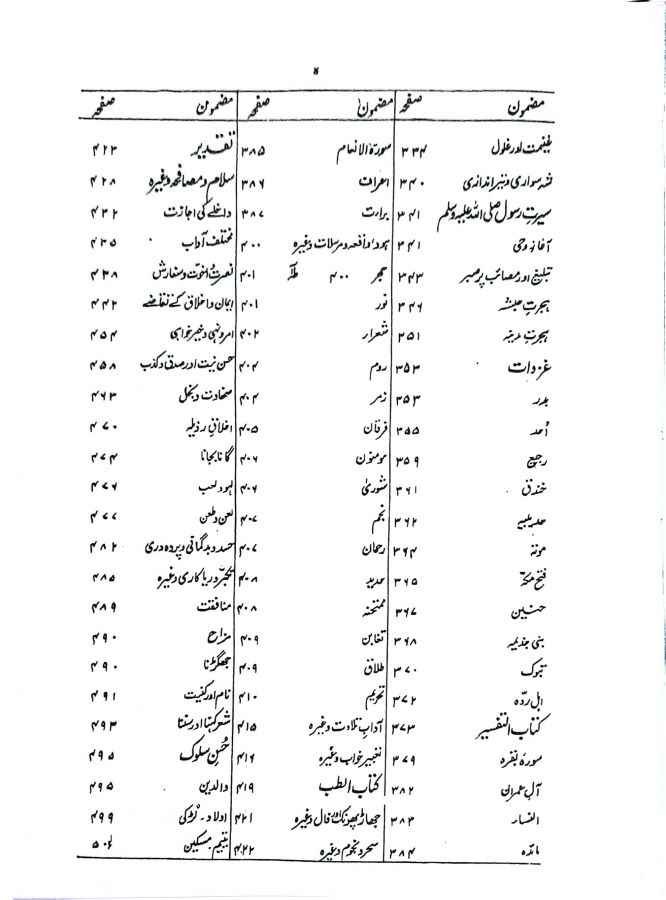 مضمون صفحہ مضمون صفحہ مضمون صفحہ
غنیمت اور غلول ۳۳۴ سورۃ الانعام ۳۸۵ تقدیر ۴۲۳
شہ سواری و تیر اندازی ۳۴۰ اعراف ۳۸۶ سلام و مصافحہ وغیرہ ۴۲۸
سیرت رسول صلی اللہ علیہ وسلم ۳۴۱ براءت ۳۸۷ داخلے کی اجازت ۴۳۲
آغاز وحی ۳۴۱ ہود واقعہ و مرسلات وغیرہ ۴۰۰ مختلف آداب ۴۳۵
تبلیغ اور مصائب پر صبر ۳۴۳ حجر ۴۰۰ طٰہٰ ۴۰۱ نصرت و اخوت و سفارش ۴۳۸
ہجرت حبشہ ۳۴۶ نور ۴۰۱ ایمان و اخلاق کے تقاضے ۴۴۲
ہجرت مدینہ ۳۵۱ شعراء ۴۰۲ امر و نہی و خیر خواہی ۴۵۴
غزوات ۳۵۳ روم ۴۰۴ حسن نیت اور صدق و کذب ۴۵۸
بدر ۳۵۳ زمر ۴۰۴ سخاوت و بخل ۴۶۳
اُحد ۳۵۵ فرقان ۴۰۵ اخلاق رذیلہ ۴۷۰
رجیع ۳۵۹ مومنون ۴۰۶ گانا بجانا ۴۷۴
خندق ۳۶۱ شوریٰ ۴۰۶ لہو و لعب ۴۷۶
حدیبیہ ۳۶۲ نجم ۴۰۷ لعن و طعن ۴۷۷
موتہ ۳۶۴ رحمان ۴۰۷ حسد و بدگمانی و پردہ دری ۴۸۲
فتح مکہ ۳۶۵ حدید ۴۰۸ تکبر و ریاکاری وغیرہ ۴۸۵
حنین ۳۶۷ ممتحنہ ۴۰۸ منافقت ۴۸۹
بنی جذیمہ ۳۶۸ تغابن ۴۰۹ مزاح ۴۹۰
تبوک ۳۷۰ طلاق ۴۰۹ جھگڑنا ۴۹۰
اہل ردّہ ۳۷۲ تحریم ۴۱۰ نام اور کنیت ۴۹۱
کتاب التفسیر ۳۷۳ آداب تلاوت وغیرہ ۴۱۵ شعر کہنا اور سننا ۴۹۳
سورۂ بقرہ ۳۷۹ تعبیر خواب وغیرہ ۴۱۶ حُسنِ سلوک ۴۹۵
آل عمران ۳۸۲ کتاب الطب ۴۱۹ والدین ۴۹۵
النساء ۳۸۳ جھاڑ پھونک اور فال وغیرہ ۴۲۱ اولاد۔ لڑکی ۴۹۹
مائدہ ۳۸۴ سحر و نجوم وغیرہ ۴۲۲ یتیم مسکین